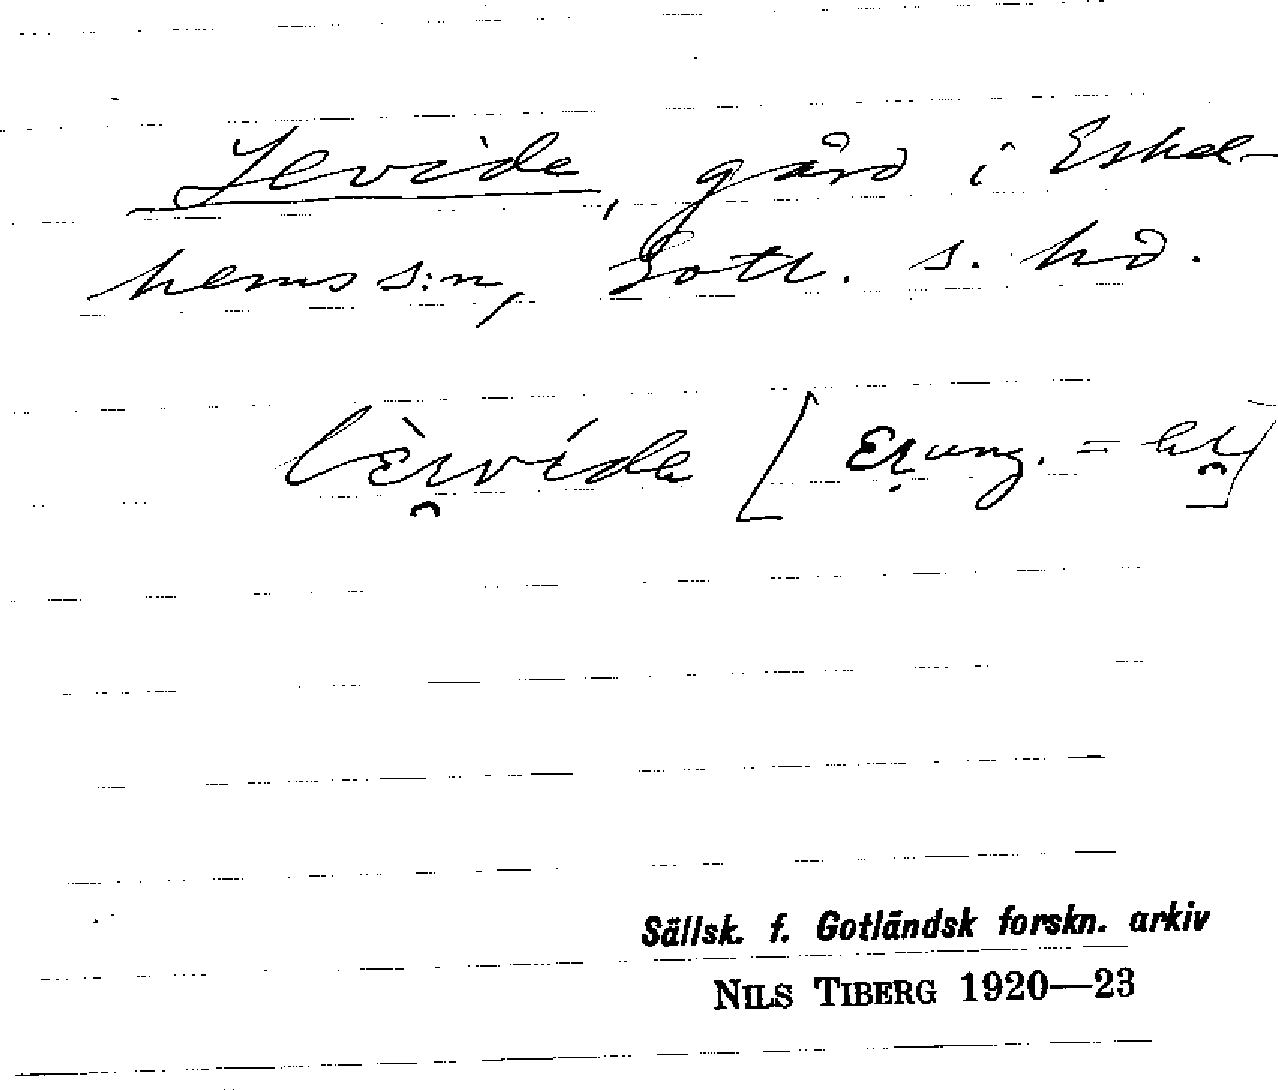 Levide, gård i Eskel-
hems s:n, Gotl. s. hd.
lèɩ̯vída [ɛɩ ung. =
Sällsk. f. Gotländsk forskn. arkiv
NILS TIBERG 1920—23